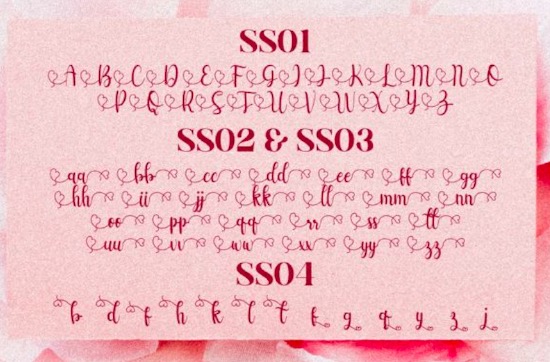 SS01
A B C D E F G I J K L M N O
P Q R S T U V W X Y Z
SS02 & SS03
aa bb cc dd ee ff gg
hh ii jj kk ll mm nn
oo pp qq rr ss tt
uu vv ww xx yy zz
SS04
b d f h k l t f g q y z j